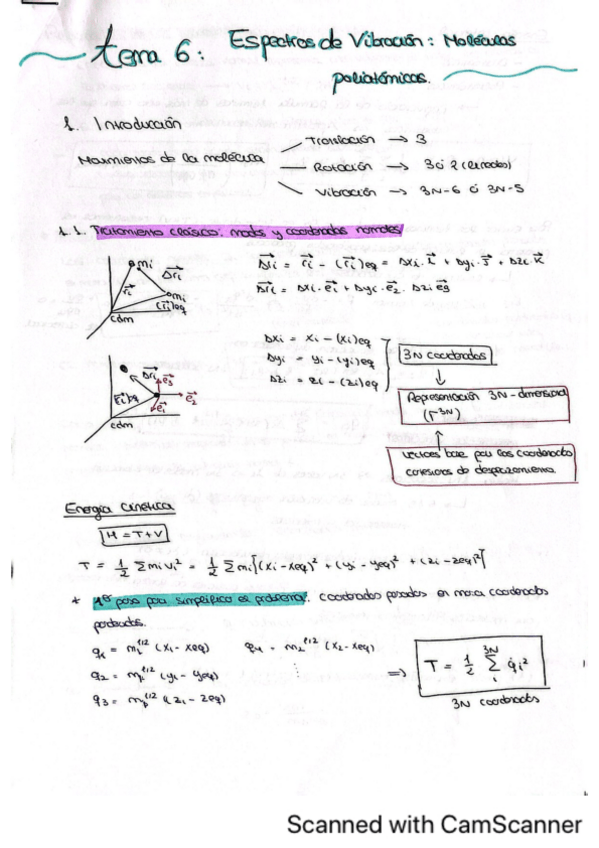 tema 6: Espectros de Vibración: Moléculas
poliatómicas.
1. Introducción
Movimientos de la molécula
Translación → 3
Rotación → 3 ó 2 (lineales)
Vibración → 3N-6 ó 3N-5
1.1. Tratamiento clásico: modos y coordenadas normales
mi
Δri
ri
mi
(ri)eq
cdm
Δri = ri - (ri)eq = Δxi·i + Δyi·j + Δzi·k
Δri = Δxi·e1 + Δyi·e2 · Δzi e3
Δxi = xi - (xi)eq
Δyi = yi - (yi)eq
Δzi = zi - (zi)eq
3N coordenadas
Representación 3N-dimensional
(Γ3N)
vectores base para las coordenadas
cartesianas de desplazamiento.
Δri
e3
(ri)eq
e1
e2
cdm
Energía cinética
H = T+V
T = 1/2 Σ mi vi² = 1/2 Σ mi[(xi - xeq)² + (yi - yeq)² + (zi - zeq)²]
* 1er paso para simplificar el problema: coordenadas pesadas en masa coordenadas
ponderadas.
q1 = m1^1/2 (x1 - xeq) q4 = m2^1/2 (x2 - xeq)
q2 = m1^1/2 (y1 - yeq) ⋮
q3 = m1^1/2 (z1 - zeq)
⇒ T = 1/2 Σ q̇i²
3N
i
3N coordenadas
Scanned with CamScanner